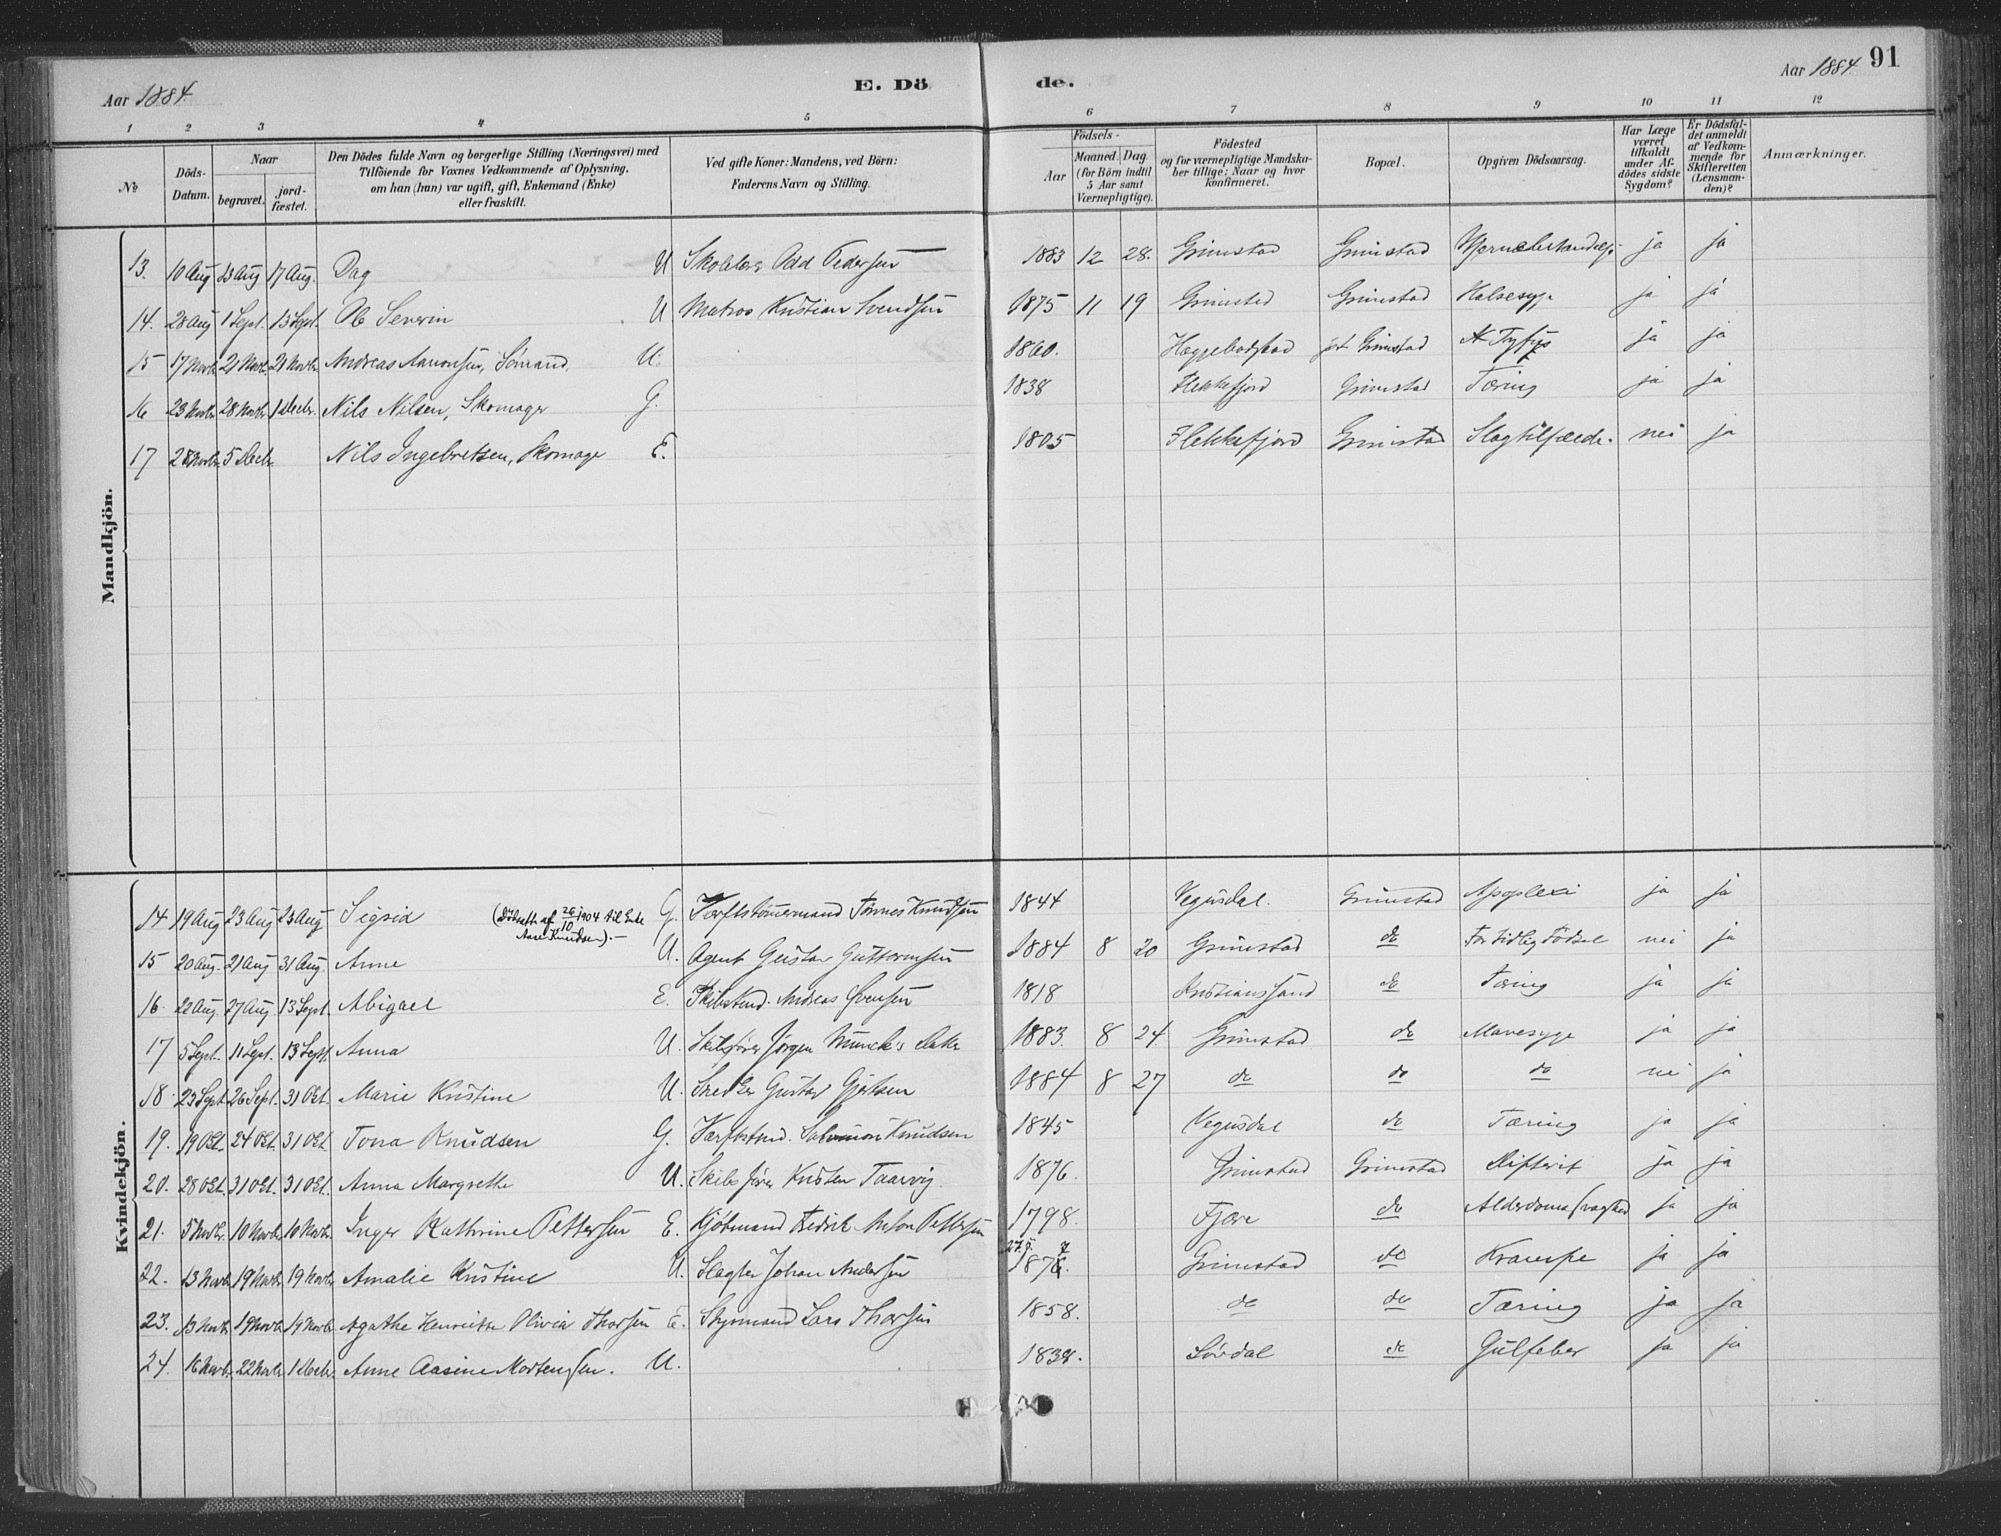 Aar 1884.
E. Dö
de.
Aar 1884. 91
1 2 3 4 5 6 7 8 9 10 11 12
No
Döds-Datum.
Naar
begravet.
jord-fæstet.
Den Dödes fulde Navn og borgerlige Stilling (Næringsvei) med
Tilföiende for Voxnes Vedkommende af Oplysning,
om han (hun) var ugift, gift, Enkemand (Enke)
eller fraskilt.
Ved gifte Koner: Mandens, ved Börn:
Faderens Navn og Stilling.
Födsels-
Aar
Maaned. Dag.
(for Börn indtil
5 Aar samt
Værnepligtige).
Födested
og for værnepligtige Mandska-
ber tillige: Naar og hvor
konfirmeret.
Bopæl.
Opgiven Dödsaarsag.
Har Læge
været
tilkaldt
under Af-
dödes sidste
Sygdom?
Er Dödsfal-
det anmeldt
af Vedkom-
mende for
Skifteretten
(Lensman-
den)?
Anmærkninger.
Mandkjön.
13. 10 Aug 13 Aug 17 Aug. Dag U Odd Pedersen 1883 12 28. Grimstad Grimstad ja ja
14. 28 Aug 1 Sept. 13 Sept. Ole Severin U Matros Kristian Svendsen 1875 11 19 Grimstad Grimstad Halsesyge ja ja
15 17 Novbr 21 Novbr. 21 Novbr. Andreas Aanonsen, Sömand, U. 1860. Grimstad Tyfus ja ja
16 23 Novbr. 28 Novbr. 1 Decbr. Nils Nilsen, Skomager G. 1838 Flekkefjord Grimstad Tæring ja ja
17 28 Novbr. 5 Decbr Nils Ingebretsen, Skomager E. 1805 Flekkefjord Grimstad Slagtilfælde. nei ja
Kvindekjön.
14 19 Aug 23 Aug 23 Aug Sigrid (Dödsatt. af 26/10 1904 til Enke Aase Knudsen).- G. Tønnes Knudsen 1844 Vegusdal. Grimstad Apoplexi ja ja
15 20 Aug. 21 Aug 31 Aug. Anne U. Agent Gustav Guttormsen 1884 8 20 Grimstad do For tidlig Födsel nei ja
16. 22 Aug. 27 Aug 13 Sept. Abigael E. Andreas Svensen 1818 Kristianssand do Tæring ja ja
17 5 Sept. 11 Sept. 13 Sept. Anna U. Skibsfører Jörgen Munck's Datter 1883. 8 24 Grimstad do Mavesyge ja ja
18. 23 Sept. 26 Sept. 31 Okt. Marie Kristine U. Snedker Gustav 1884 8 27 do do do nei ja
19. 19 Okt. 24 Okt. 31 Okt. Tona Knudsen G. Salomon Knudsen 1845 Vegusdal do Tæring ja ja
20. 28 Okt. 31 Okt. 31 Okt. Anna Margrethe U. Skibsfører Kristen Taarvig. 1876. Grimstad Grimstad Difterit ja ja
21. 5 Novbr. 10 Novbr. 10 Novbr. Inger Kathrine Pettersen E. Kjöbmand Fredrik Anton Pettersen 1798. Fjære do Alderdomssvaghed ja ja
22. 13 Novbr. 19 Novbr. 19 Novbr. Amalie Kristine U. Slagter Johan Andersen Grimstad do Krampe ja ja
23. 13 Novbr. 19 Novbr. 19 Novbr. Agathe Henriette Olivia Thorsen E. Styrmand Lars Thorsen 1858. do do Tæring ja ja
24. 16 Novbr. 22 Novbr. 1 Decbr. Anne Aasine Mortensen. U. Søndal do Gulfeber ja ja